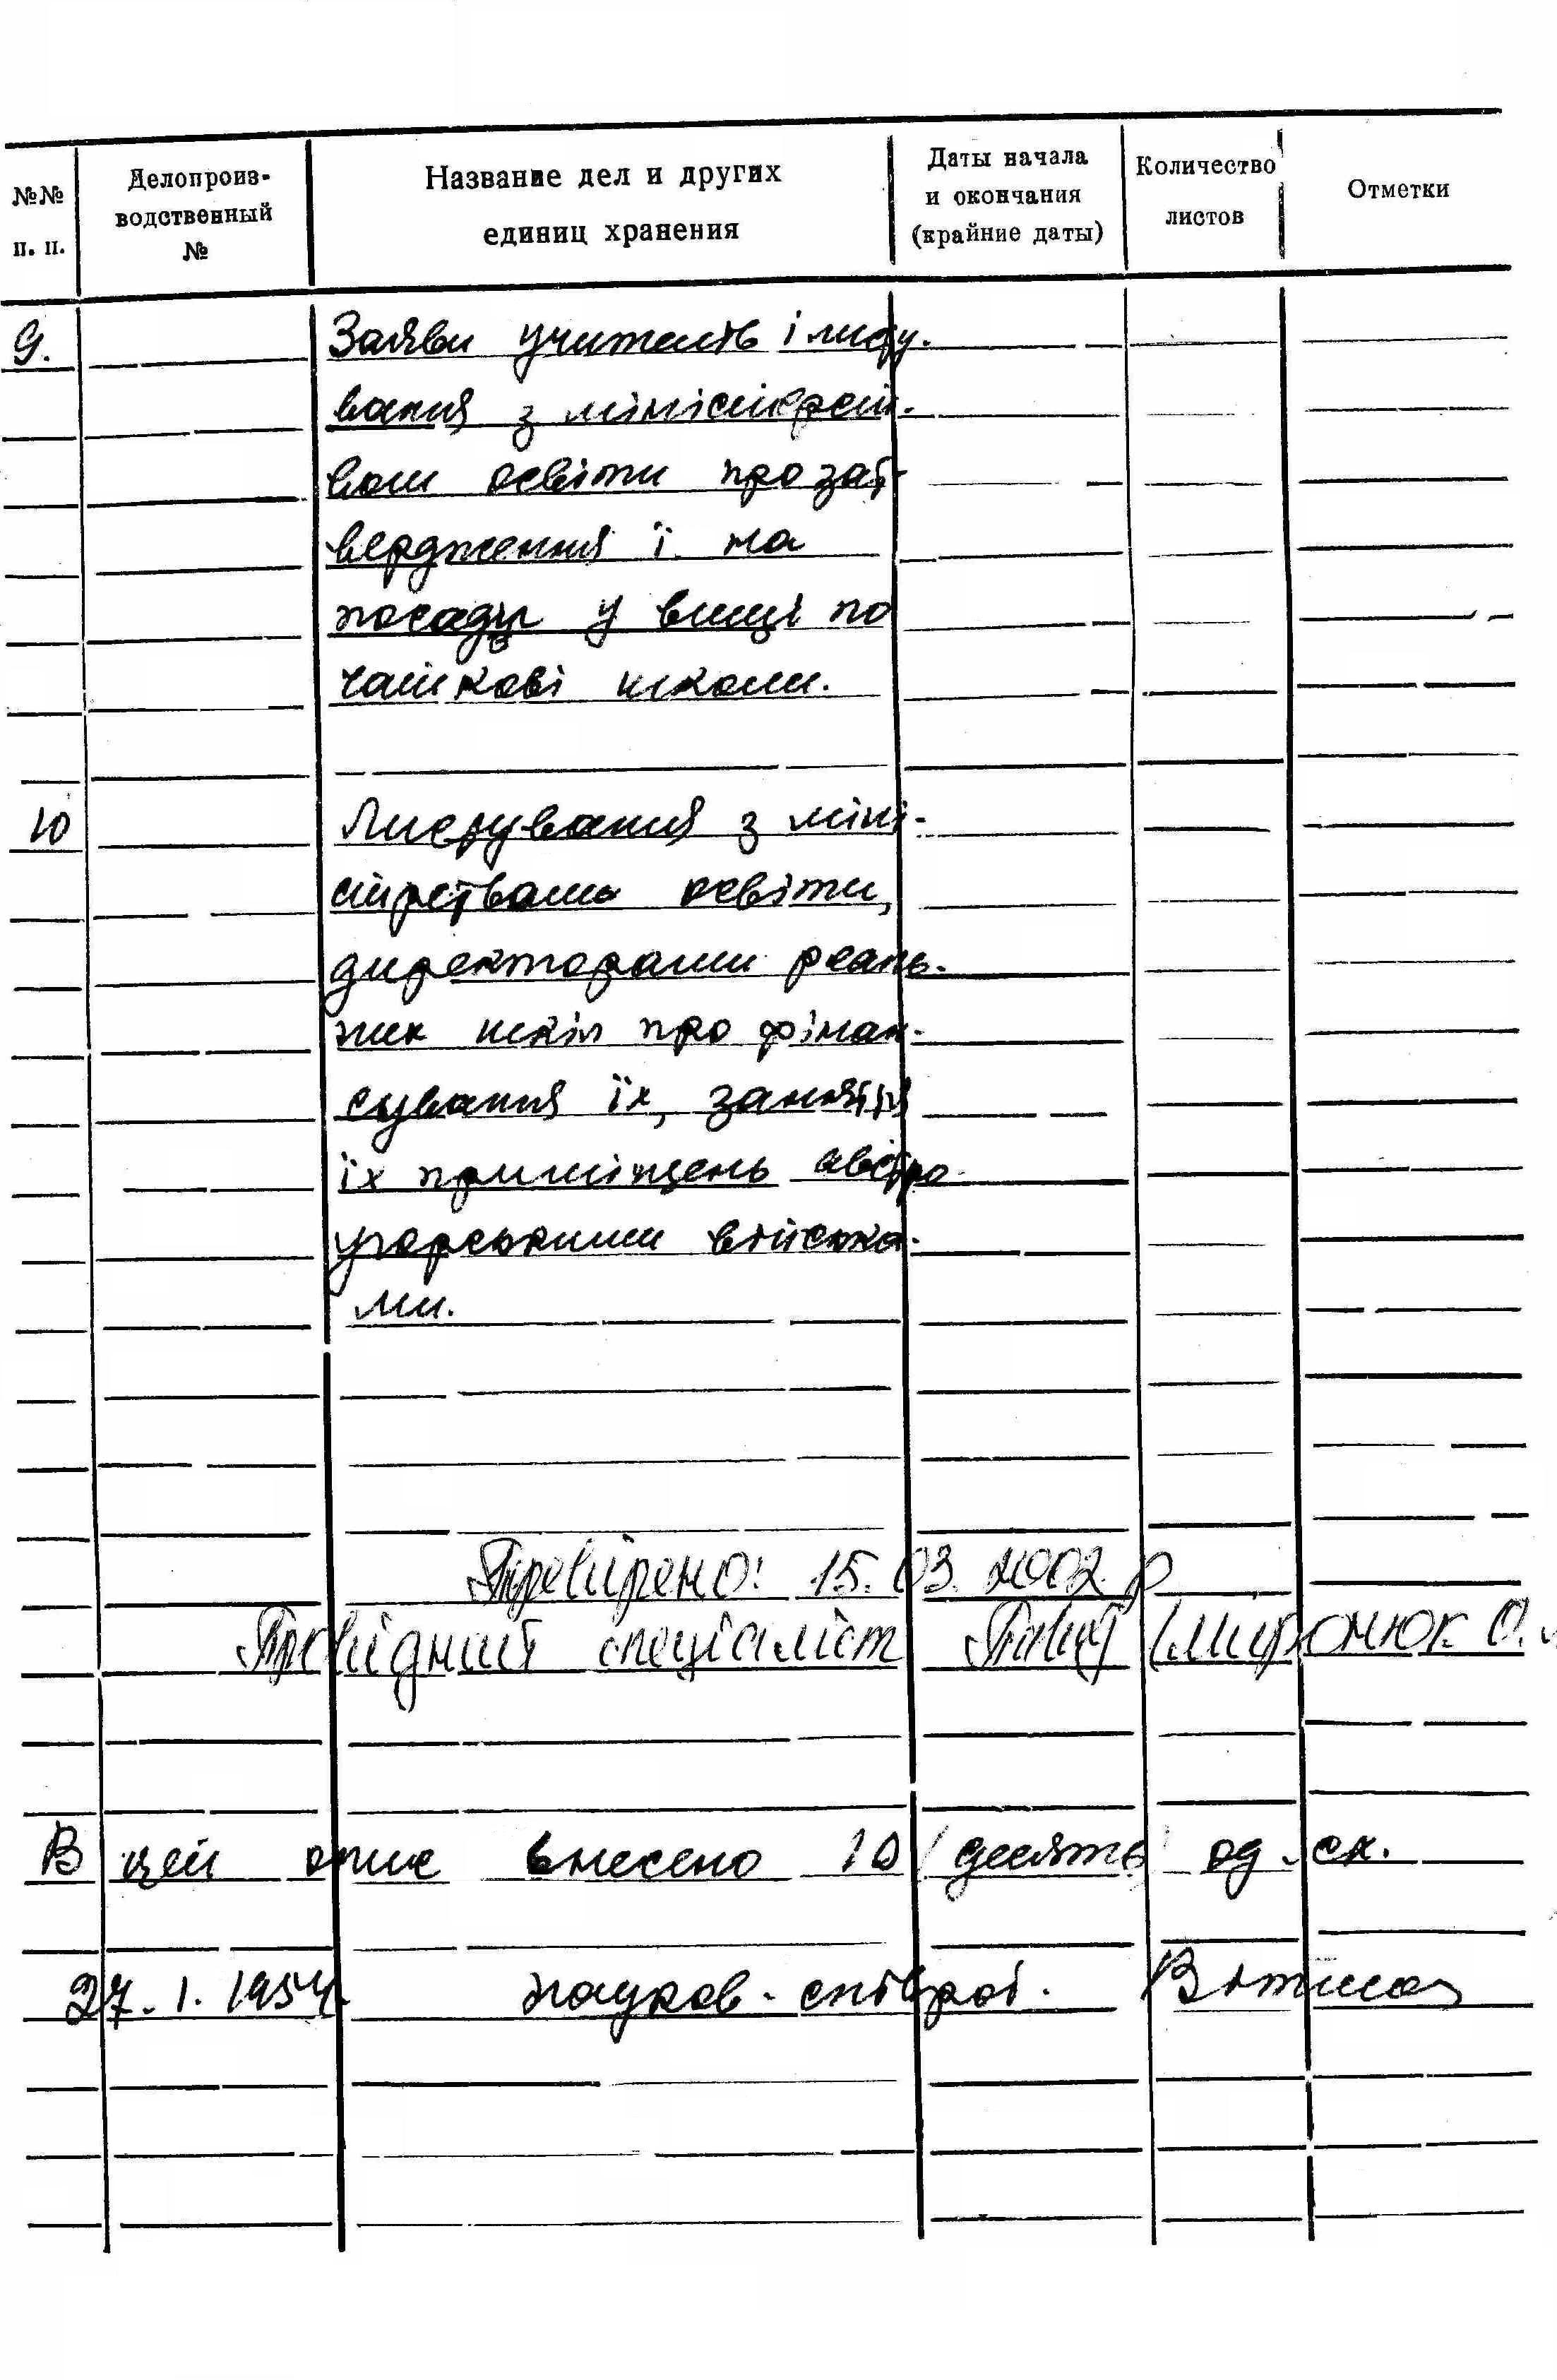 №№ п. п.
Делопроиз-
водственный
№
Название дел и других
единиц хранения
Даты начала
и окончания
(крайние даты)
Количество
листов
Отметки
9. Заяви учителів і листу-
вання з міністерст-
вом освіти про зат-
вердження ї на
посади у вищі по
чаткові школи.
10 Листування з міні-
стерствами освіти,
директорами реаль-
них шкіл про фінан-
сування їх, заняття
їх приміщень австро-
угорськими військa-
ми.
15.03.2002 р
Провідний спеціаліст (Миронюк О.
В цей опис внесено 10 (десять) од. сх.
27.1.1954 науков. співроб.